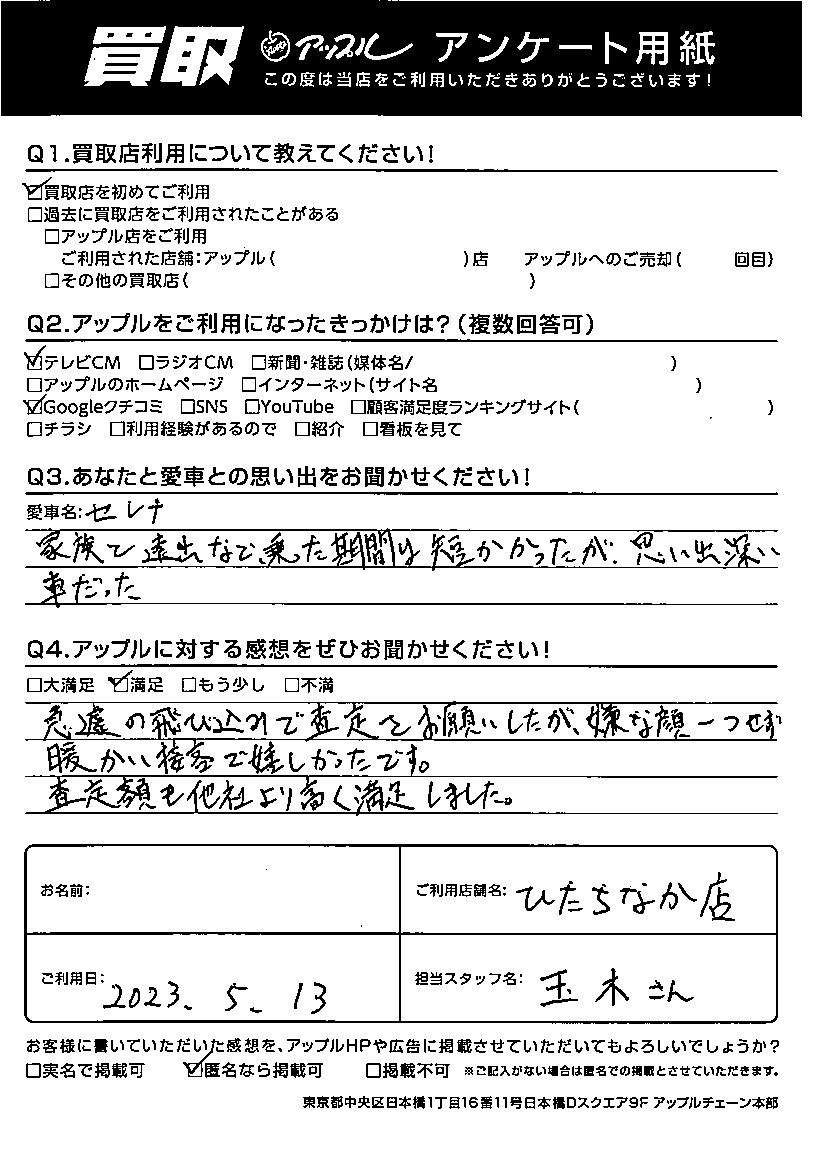 買取 アップル アンケート用紙
この度は当店をご利用いただきありがとうございます!
Q1.買取店利用について教えてください!
☑買取店を初めてご利用
□過去に買取店をご利用されたことがある
□アップル店をご利用
ご利用された店舗:アップル( )店 アップルへのご売却( 回目)
□その他の買取店( )
Q2.アップルをご利用になったきっかけは?(複数回答可)
☑テレビCM □ラジオCM □新聞・雑誌(媒体名/ )
□アップルのホームページ □インターネット(サイト名 )
☑Googleクチコミ □SNS □YouTube □顧客満足度ランキングサイト( )
□チラシ □利用経験があるので □紹介 □看板を見て
Q3.あなたと愛車との思い出をお聞かせください!
愛車名:セレナ
家族で遠出など、乗った期間は短かかったが、思い出深い
車だった
Q4.アップルに対する感想をぜひお聞かせください!
□大満足 ☑満足 □もう少し □不満
急遽の飛び込みで査定をお願いしたが、嫌な顔一つせず
暖かい接客で嬉しかったです。
査定額も他社より高く満足しました。
お名前:
ご利用店舗名: ひたちなか店
ご利用日: 2023. 5. 13
担当スタッフ名: 玉木さん
お客様に書いていただいた感想を、アップルHPや広告に掲載させていただいてもよろしいでしょうか?
□実名で掲載可 ☑匿名なら掲載可 □掲載不可 ※ご記入がない場合は匿名での掲載とさせていただきます。
東京都中央区日本橋1丁目16番11号日本橋Dスクエア9F アップルチェーン本部